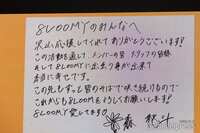 8LOOMYのみんなへ
沢山応援してくれてありがとうございます!!
この活動を通してメンバーの皆 スタッフの皆様
そして8LOOMYに出会う事が出来て
本当に幸せです。
この先もずっと皆のそばで咲き続けるので
これからも8LOOMをよろしくお願いします!
8LOOMY愛してます♡